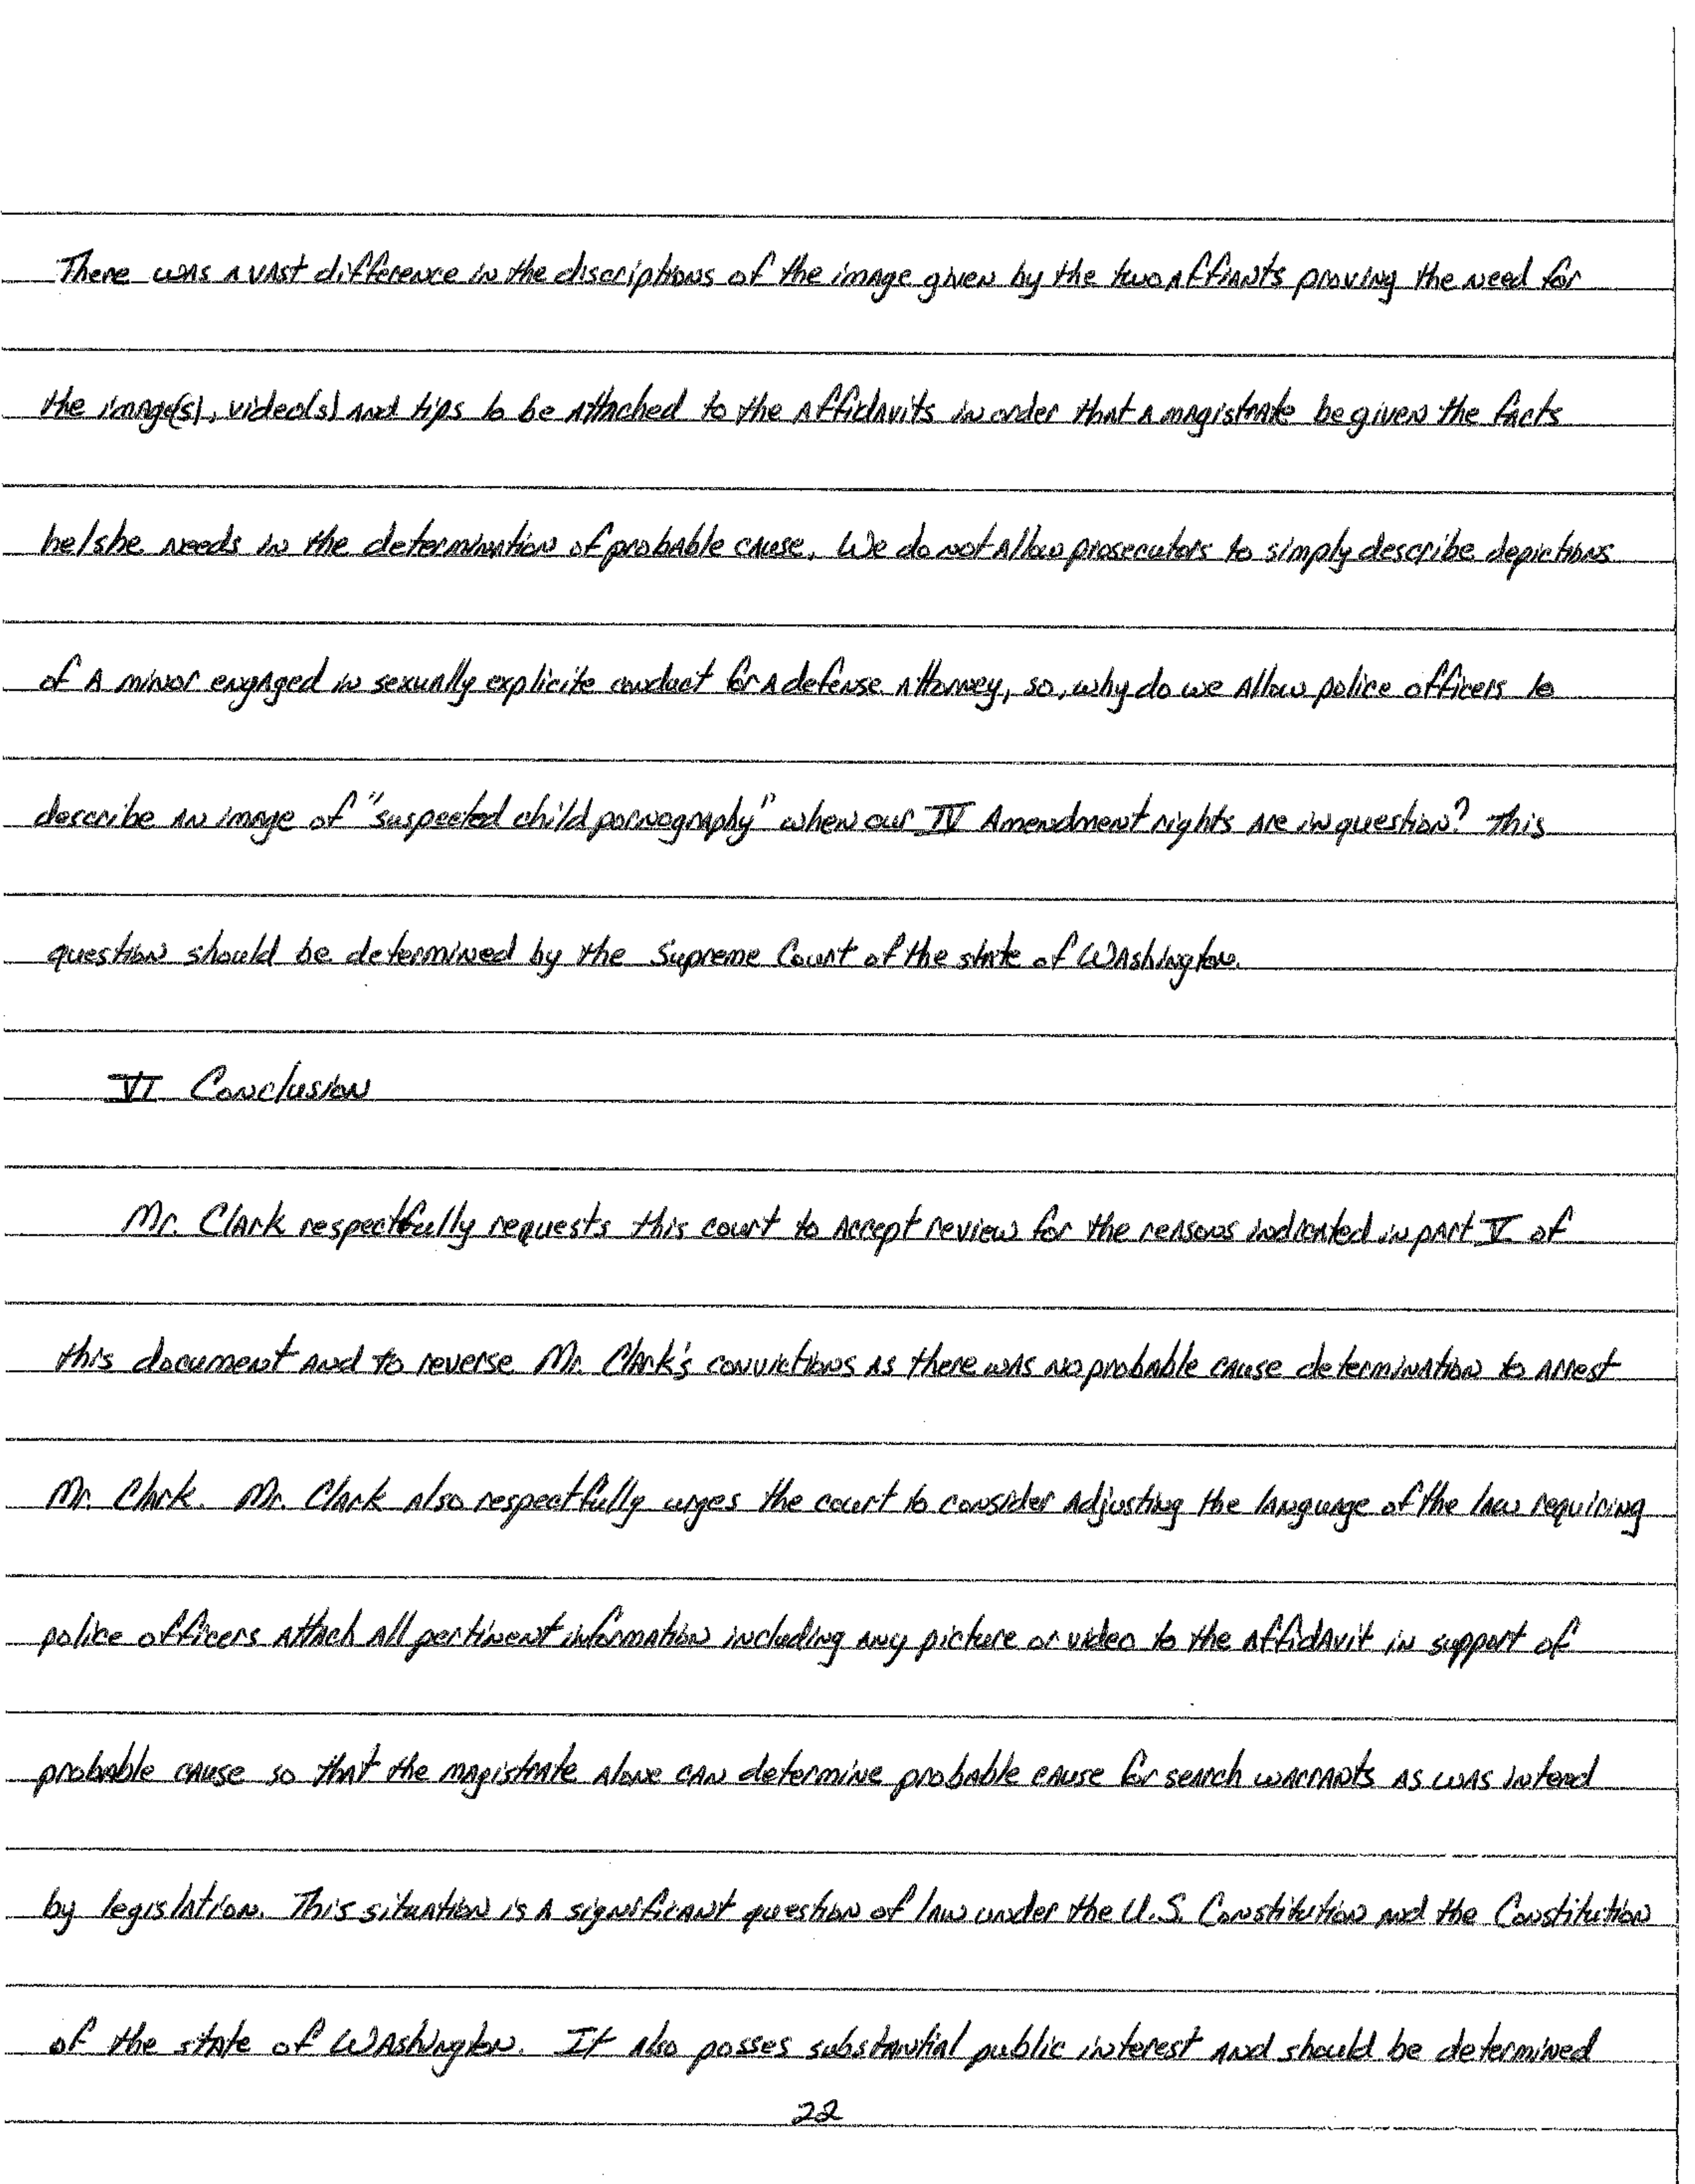 There was a vast difference in the discriptions of the image given by the two affiants proving the need for
the image(s), video(s) and tips to be attached to the affidavits in order that a magistrate be given the facts
he/she needs in the determination of probable cause. We do not allow prosecutors to simply describe depictions
of a minor engaged in sexually explicite conduct for a defense attorney, so, why do we allow police officers to
describe an image of "suspected child pornography" when our IV Amendment rights are in question? This
question should be determined by the Supreme Court of the state of Washington.
VI Conclusion
Mr. Clark respectfully requests this court to accept review for the reasons indicated in part V of
this document and to reverse Mr. Clark's convictions as there was no probable cause determination to arrest
Mr. Clark. Mr. Clark also respectfully urges the court to consider adjusting the language of the law requiring
police officers attach all pertinent information including any picture or video to the affidavit in support of
probable cause so that the magistrate alone can determine probable cause for search warrants as was intend
by legislation. This situation is a significant question of law under the U.S. Constitution and the Constitution
of the state of Washington. It also posses substantial public interest and should be determined
22